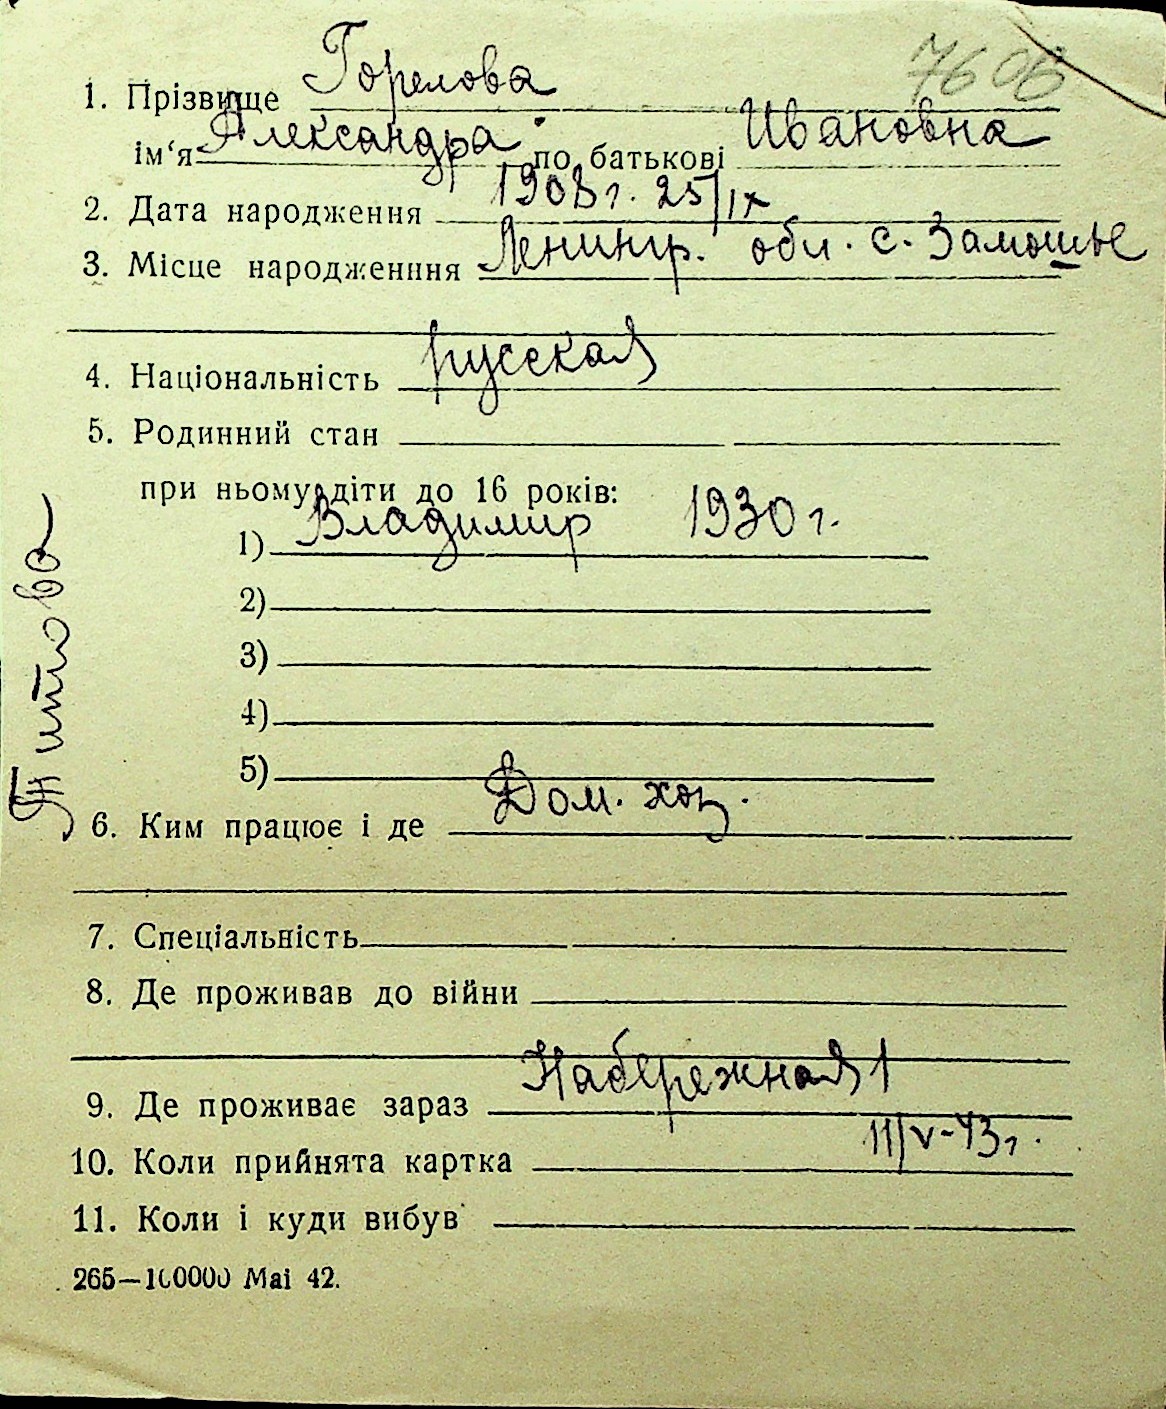 7606
1. Прізвище Горелова
ім‘я Александра по батькові Ивановна
2. Дата народження 1908 г. 25/IX
3. Місце народженння Ленингр. обл. с. Замошье
4. Національність русская
5. Родинний стан
при ньому діти до 16 років:
1) Владимир 1930 г.
2)
3)
4)
5)
6. Ким працює і де Дом. хоз.
7. Спеціальність
8. Де проживав до війни
9. Де проживає зараз Набережная 1
10. Коли прийнята картка 11/V-43 г.
11. Коли і куди вибув
265—100000 Mai 42.
Титова